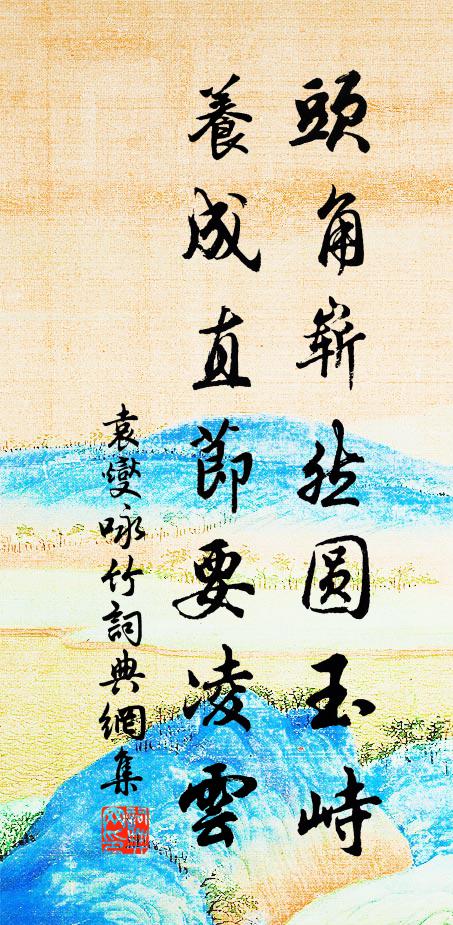 頭角嶄然圓玉峙
養成直節要凌雲
袁燮咏竹詞典網集